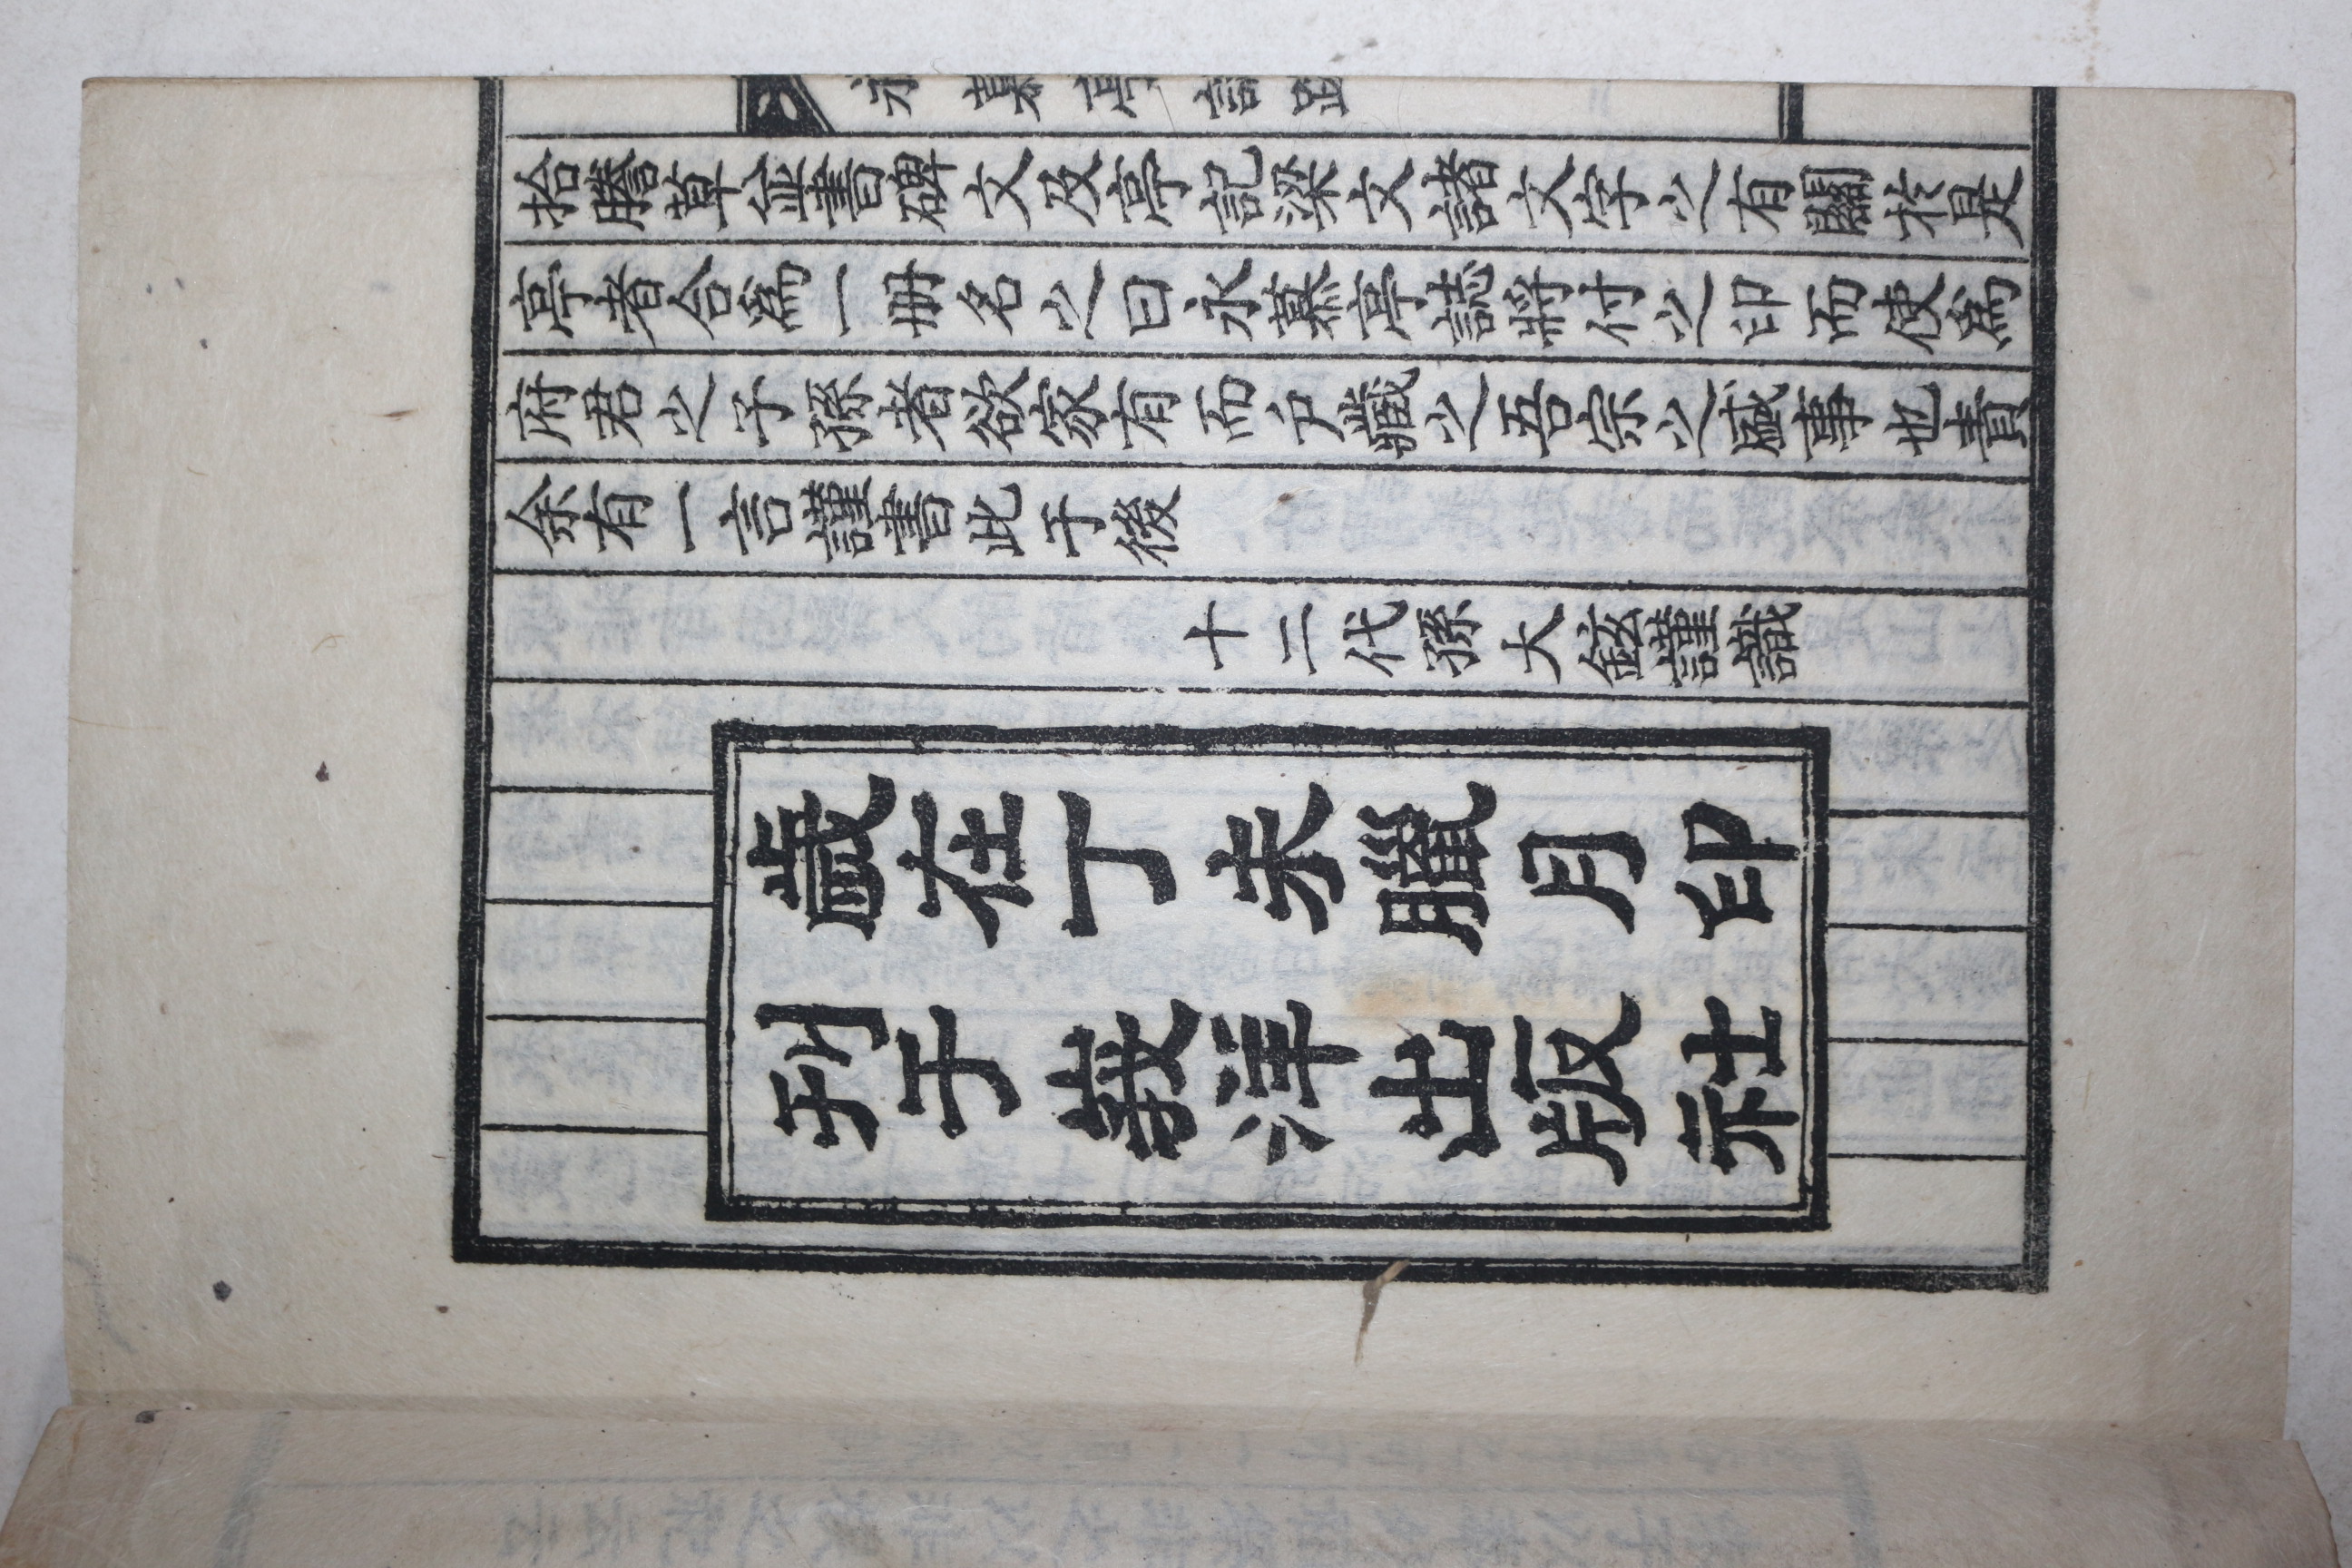 永慕亭誌
拾謄草並書碑文及亭記樑文諸文字之有關於是
亭者合爲一冊名之曰永慕亭誌將付之印而使爲
府君之子孫者欲家有而戶藏之吾宗之盛事也責
余有一言謹書此于後
十二代孫大鉉謹識
歲在丁未臘月印
刊于峩洋出版社